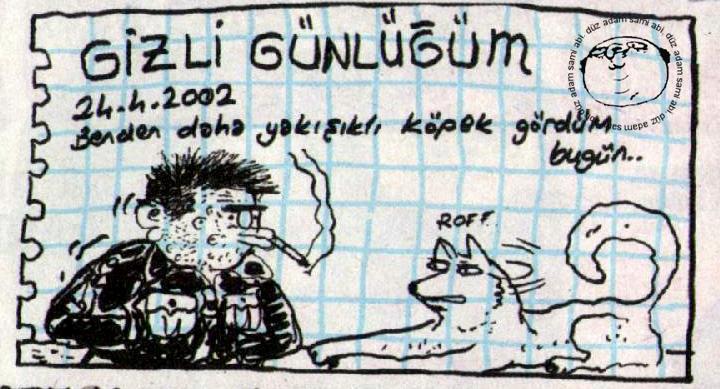 GİZLİ GÜNLÜĞÜM
24.4.2002
Benden daha yakışıklı köpek gördüm
bugün..
ROFF
düz adam sami abi. düz adam sami abi. düz adam sami abi. düz adam sami abi.